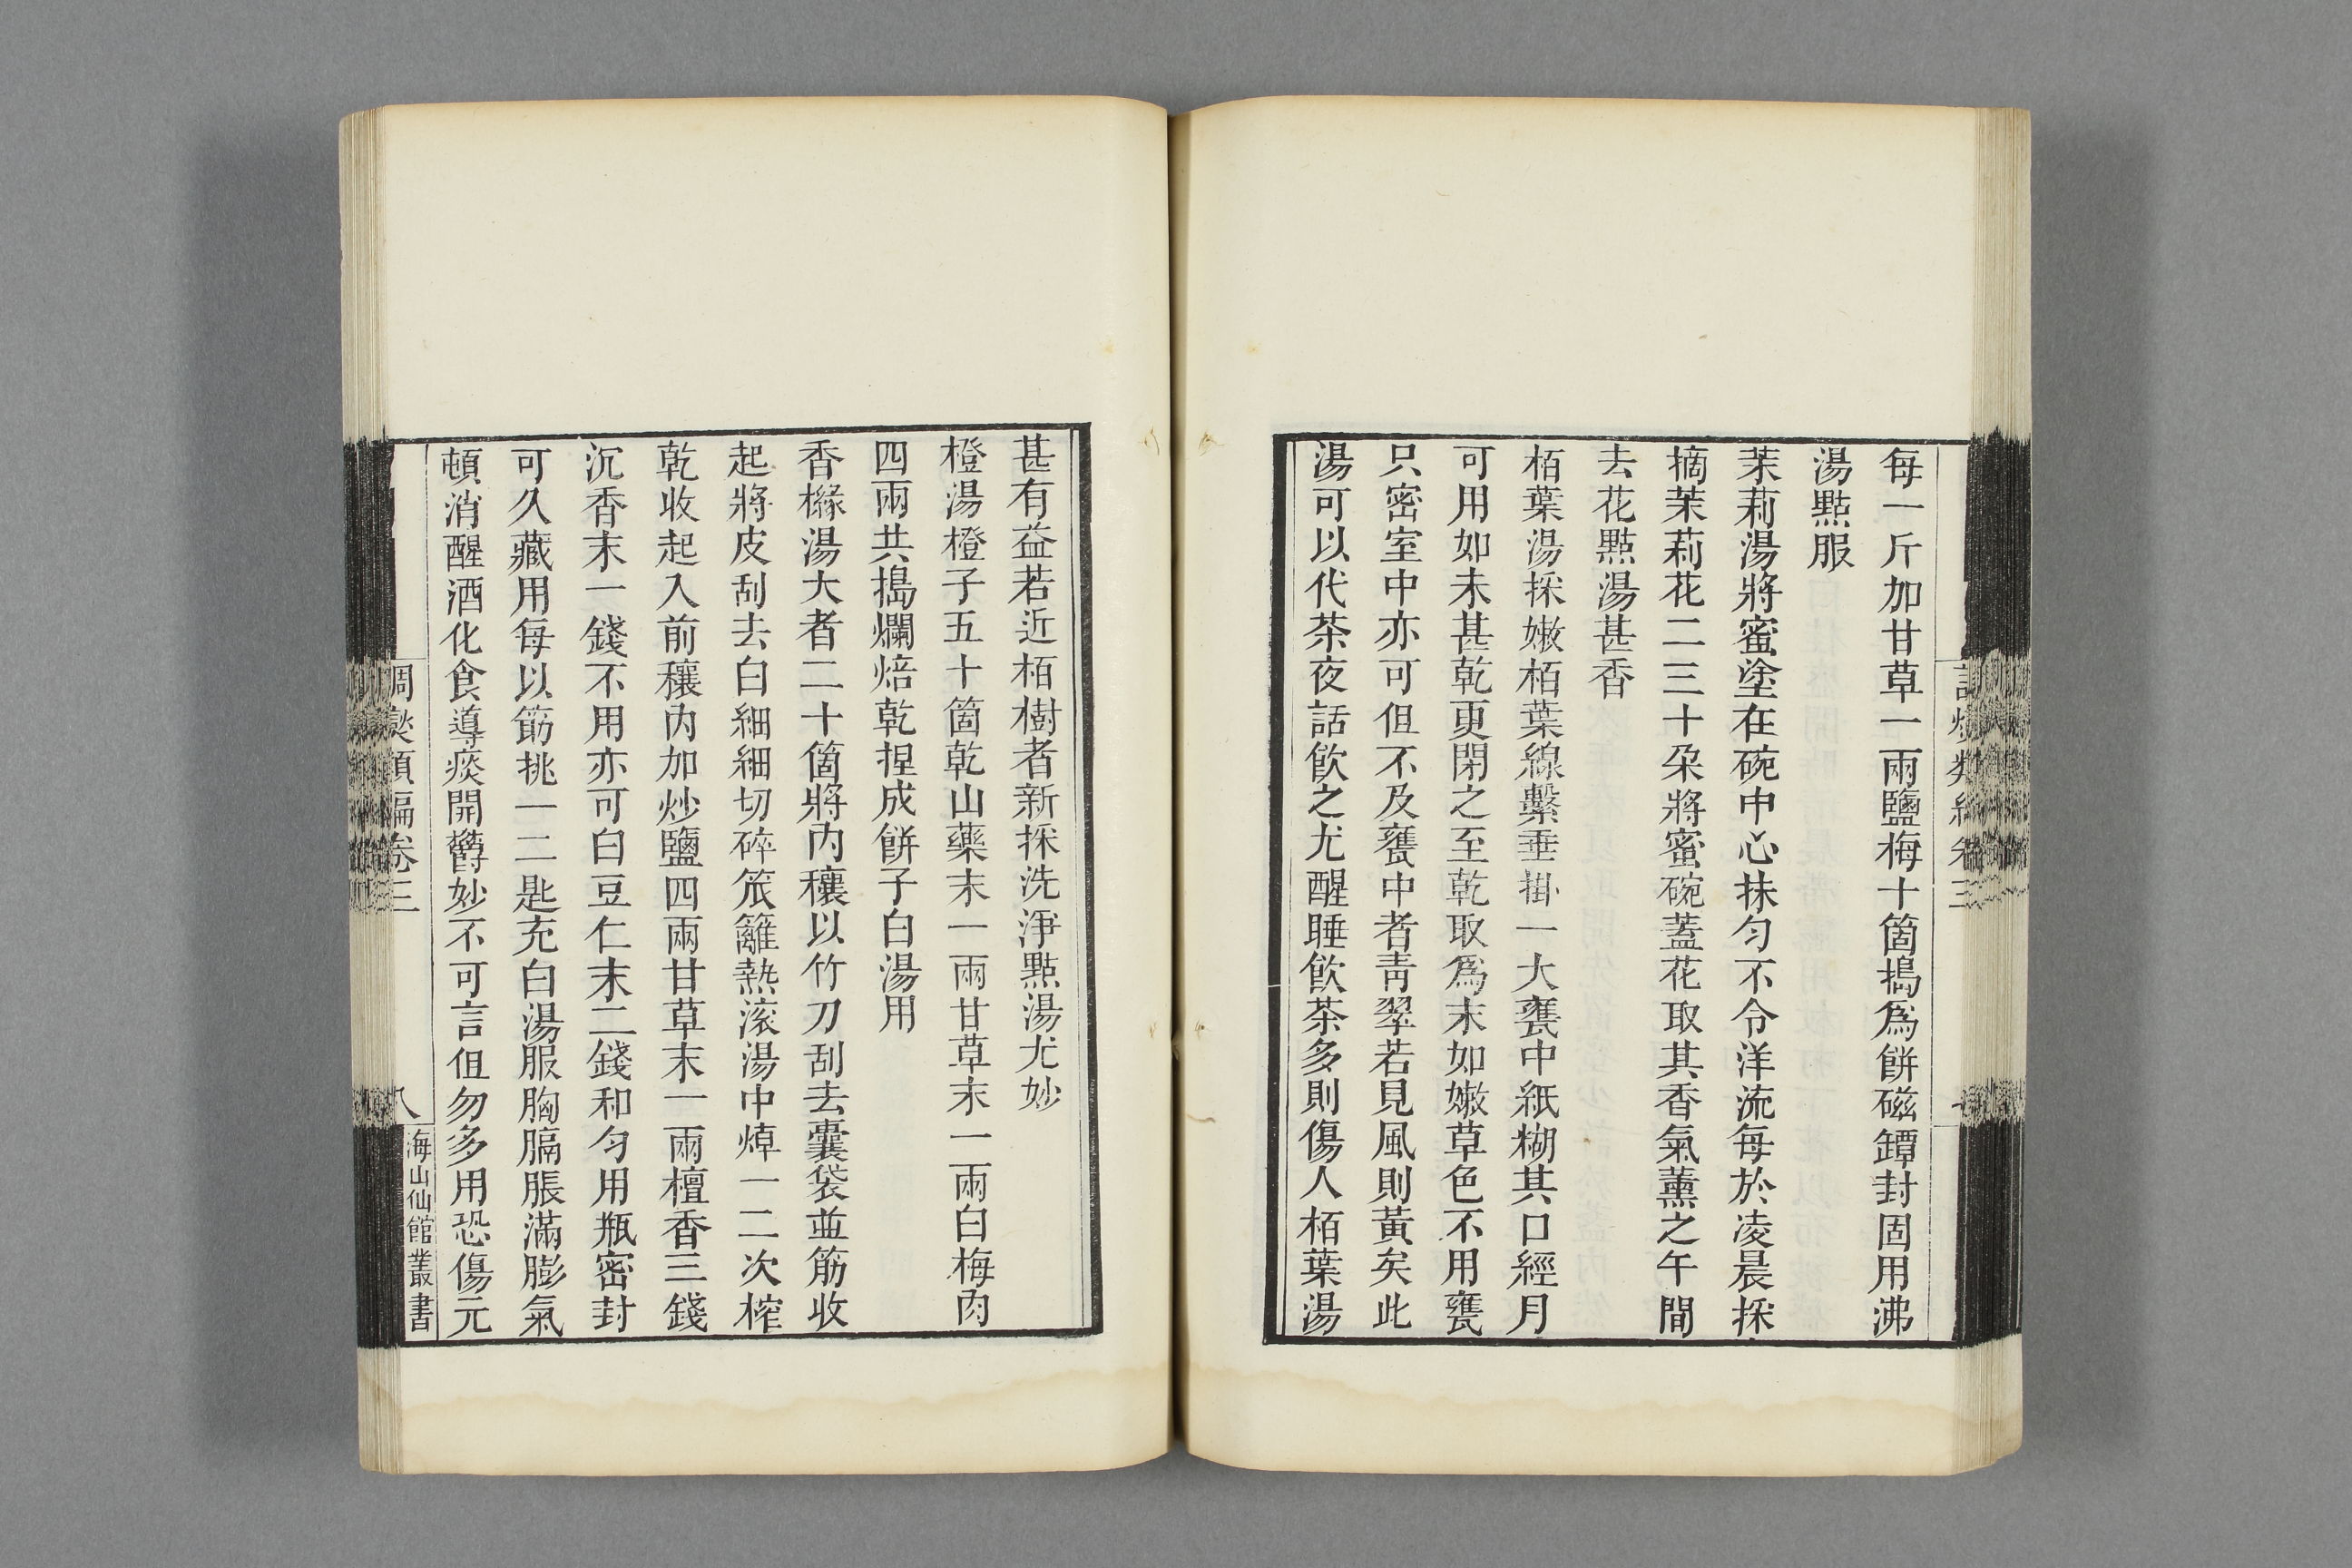 每一斤加甘草一兩鹽梅十箇搗爲餅磁罈封固用沸
湯點服
茉莉湯將蜜塗在碗中心抹勻不令洋流每於凌晨採
摘茉莉花二三十朶將蜜碗蓋花取其香氣薰之午間
去花點湯甚香
栢葉湯採嫩栢葉線繫垂掛一大甕中紙糊其口經月
可用如未甚乾更閉之至乾取爲末如嫩草色不用甕
只密室中亦可但不及甕中者靑翠若見風則黃矣此
湯可以代茶夜話飮之尤醒睡飮茶多則傷人栢葉湯
甚有益若近栢樹者新採洗淨點湯尤妙
橙湯橙子五十箇乾山藥末一兩甘草末一兩白梅肉
四兩共搗爛焙乾捏成餅子白湯用
香櫞湯大者二十箇將內穰以竹刀刮去囊袋並筋收
起將皮刮去白細細切碎笊籬熱滾湯中焯一二次榨
乾收起入前穰內加炒鹽四兩甘草末一兩檀香三錢
沉香末一錢不用亦可白豆仁末二錢和勻用瓶密封
可久藏用每以筯挑一二匙充白湯服胸膈脹滿膨氣
頓消醒酒化食導痰開鬱妙不可言但勿多用恐傷元
調燮類編卷三
八
海山仙館叢書